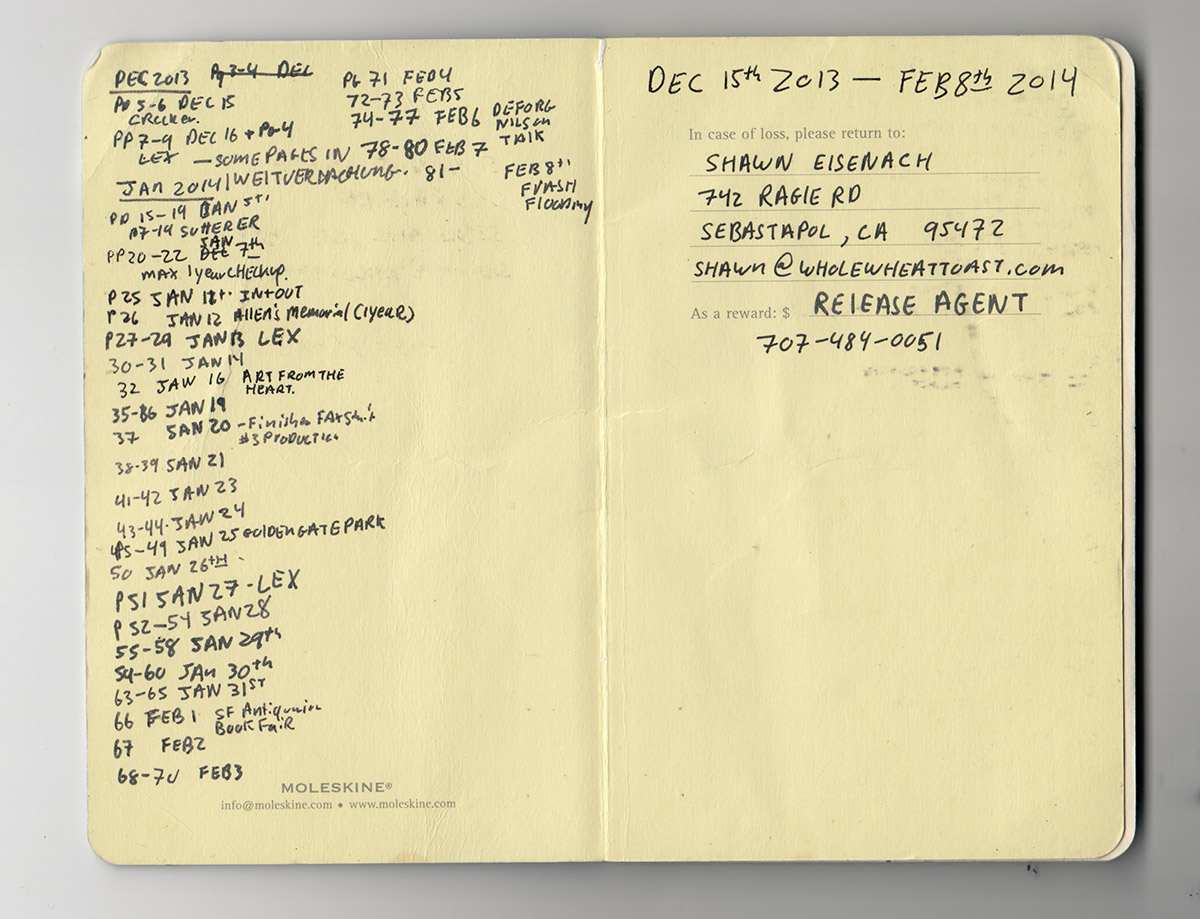 DEC 2013 Pg 3-4 DEC
PP 5-6 DEC 15
CRECKER
PP 7-9 DEC 16 + PG-4
LEX — SOME PAGES IN
JAN 2014 / WEITVERDACHUNG.
PP 15-19 JAN 5th
17-19 SUTTERER
JAN
PP20-22 DEC 7th
MAX 1 year CHECKUP.
P25 JAN 11th IN+OUT
P26 JAN 12 Allen's Memorial (1 YEAR)
P27-29 JAN13 LEX
30-31 JAN 14
32 JAN 16 ART FROM THE
HEART.
35-36 JAN 19
37 JAN 20 - Finished
#3 PRODUCTION
38-39 JAN 21
41-42 JAN 23
43-44 JAN 24
45-49 JAN 25 GOLDEN GATE PARK
50 JAN 26TH
P51 JAN 27 - LEX
P 52-54 JAN 28
55-58 JAN 29th
59-60 JAN 30th
63-65 JAN 31ST
66 FEB 1 SF Antiquarian
BOOK FAIR
67 FEB2
68-70 FEB3
PG 71 FEB4
72-73 FEB5
74-77 FEB6 DEFORG
NILSEN
TALK
78-80 FEB 7
81- FEB 8th
FLASH
FLOODING
MOLESKINE®
info@moleskine.com • www.moleskine.com
DEC 15th 2013 — FEB 8th 2014
In case of loss, please return to:
SHAWN EISENACH
742 RAGLE RD
SEBASTAPOL, CA 95472
SHAWN@WHOLEWHEATTOAST.com
As a reward: $ RELEASE AGENT
707-484-0051